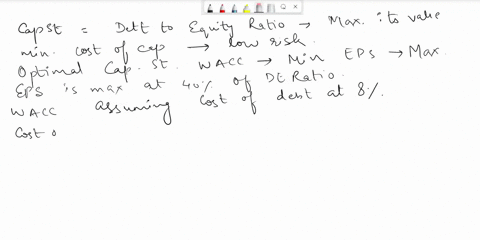 Cap St = Debt to Equity Ratio → Max. to value
min. cost of cap → low risk.
Optimal Cap. St. WACC → Min EPS → Max.
EPS is max at 40% of DE Ratio.
WACC assuming Cost of debt at 8%.
Cost o